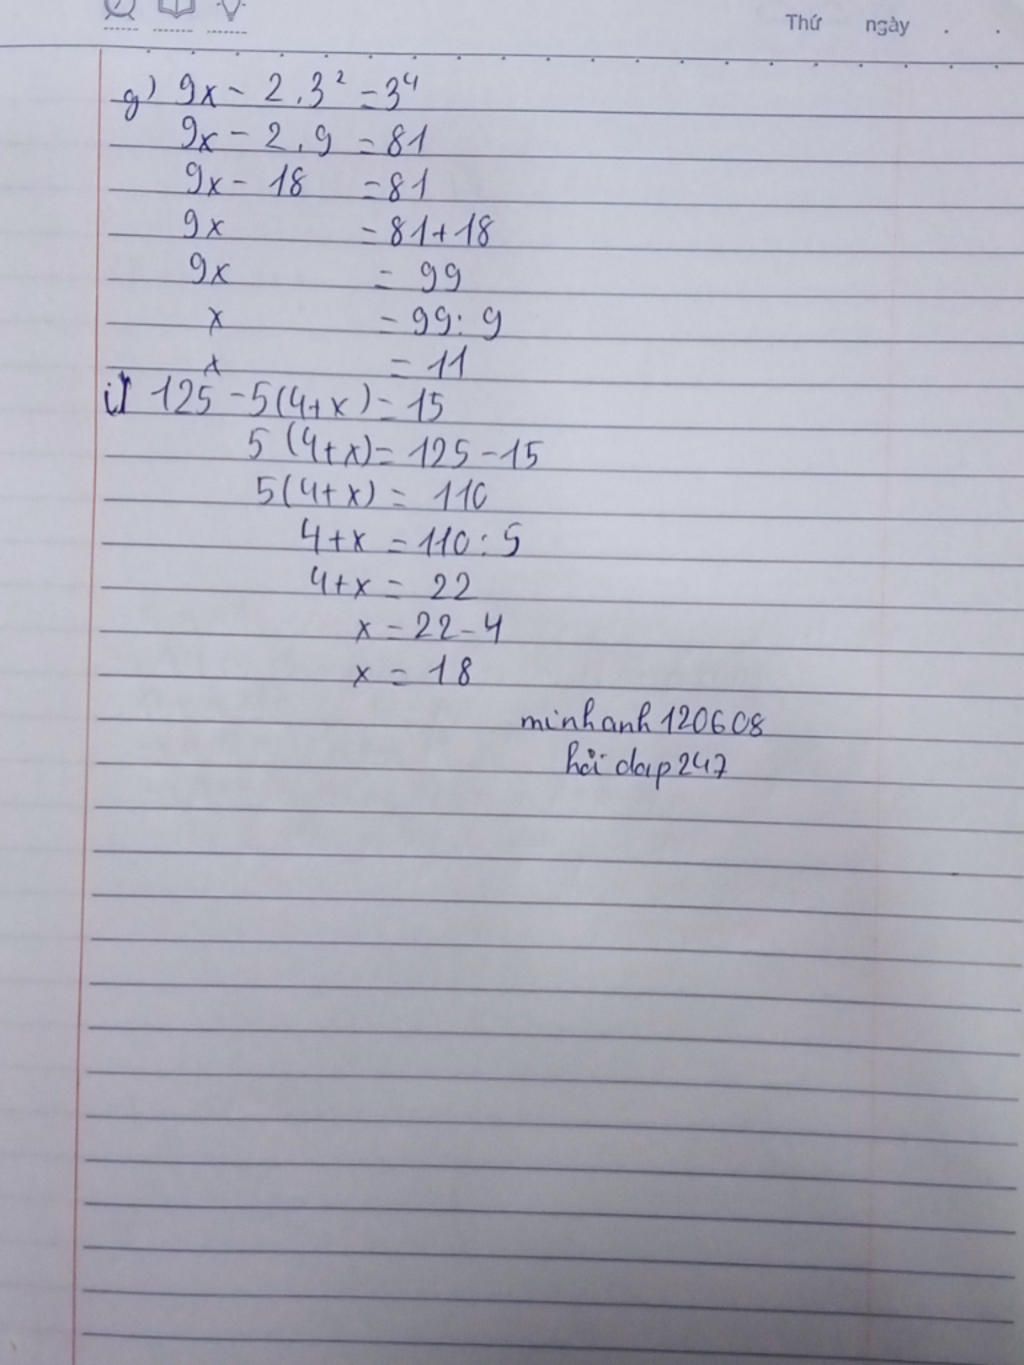 Thứ ngày . .
g) 9x - 2.3² = 3⁴
9x - 2.9 = 81
9x - 18 = 81
9x = 81+18
9x = 99
x = 99:9
x = 11
i) 125 - 5(4+x) = 15
5(4+x) = 125-15
5(4+x) = 110
4+x = 110:5
4+x = 22
x = 22-4
x = 18
minhanh120608
hỏi dap247